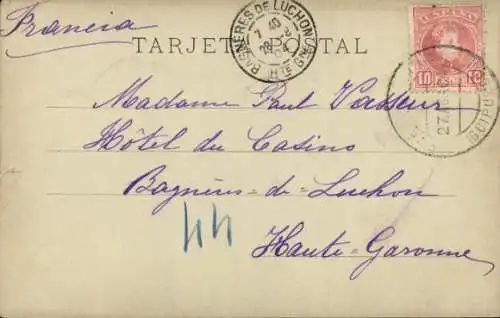 Francia
TARJETA POSTAL
BAGNÈRES-DE-LUCHON
7 40
28
HTE G
ESPAÑA
10 10
27
GUIPUZ
Madame Paul Vasseur
Hôtel du Casino
Bagnères-de-Luchon
44
Haute-Garonne